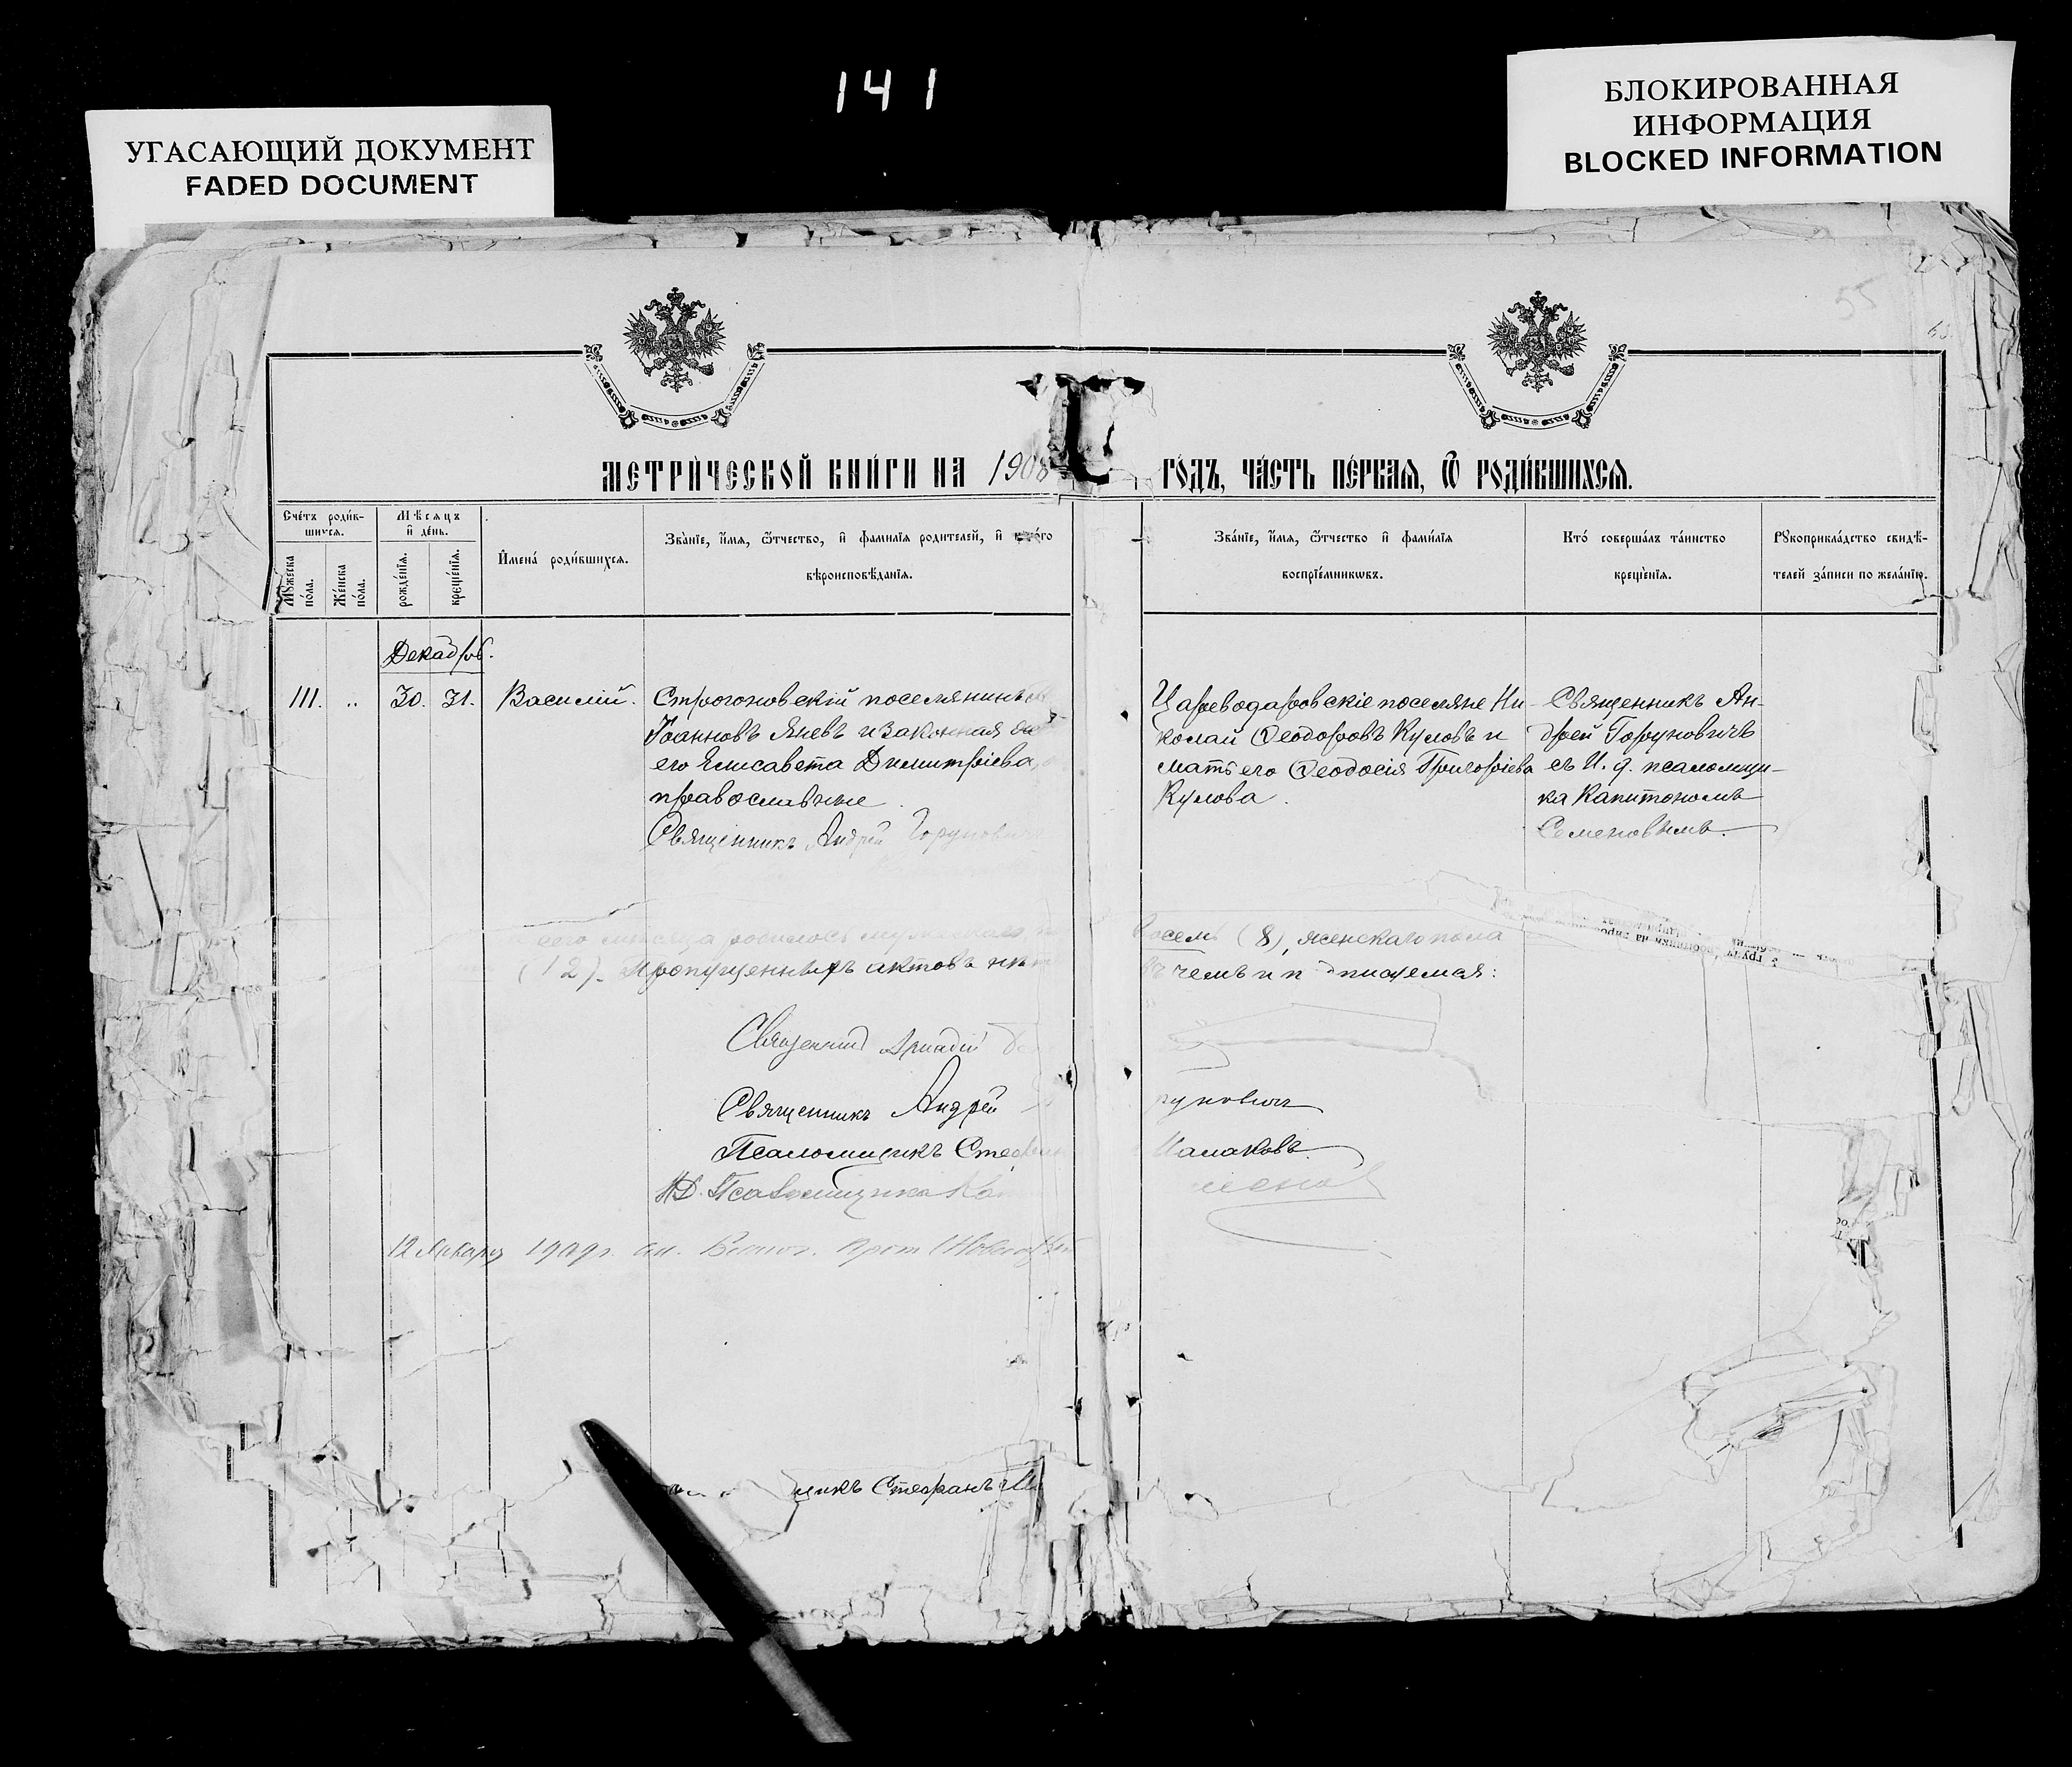 141
УГАСАЮЩИЙ ДОКУМЕНТ
FADED DOCUMENT
БЛОКИРОВАННАЯ
ИНФОРМАЦИЯ
BLOCKED INFORMATION
55
МЕТРИ́ЧЕСКОЙ КНИ́ГИ НА 1908 ГО́ДЪ, ЧА́СТЬ ПЕ́РВАЯ, Ѿ РОДИ́ВШИХСЯ.
Сче́тъ роди́вшихся.
Мꙋ́жеска по́ла.
Же́нска по́ла.
Мѣ́сяцъ и҆ де́нь.
рожде́нїя.
креще́нїя.
И҆мена̀ роди́вшихся.
Зва́нїе, и҆́мя, ѻ҆́тчество, и҆ фами́лїя роди́телей, и҆
вѣроисповѣ́данїя.
Зва́нїе, и҆́мя, ѻ҆́тчество и҆ фами́лїя
воспрїе́мникѡвъ.
Кто̀ соверша́лъ та́инство
креще́нїя.
Рꙋкоприкла́дство свидѣ́-
телей за́писи по жела́нїю.
Декабрь.
111. „ 30. 31. Василій.
Строгоновскій поселянинъ
Іоанновъ Яневъ и законная
его Елисавета Димитріева,
православные
Священникъ Андрей Горуновичъ
Цареводаровскіе поселяне Ни-
колай Ѳеодоровъ Куловъ и
мать его Ѳеодосія Григоріева
Кулова.
Священникъ Ан-
дрей Горуновичъ
съ И. д. псаломщи-
ка Капитономъ
Семеновымъ.
сего мѣсяца родилось мужскаго восемь (8), женскаго пола
(12). Пропущенныхъ актовъ въ чемъ и подписуемся:
Священникъ Аркадій
Священникъ Андрей руновичъ
Псаломщикъ Стефанъ Малаковъ
И.Д. Псаломщика
12 Января 1909 г.
щикъ Стефанъ